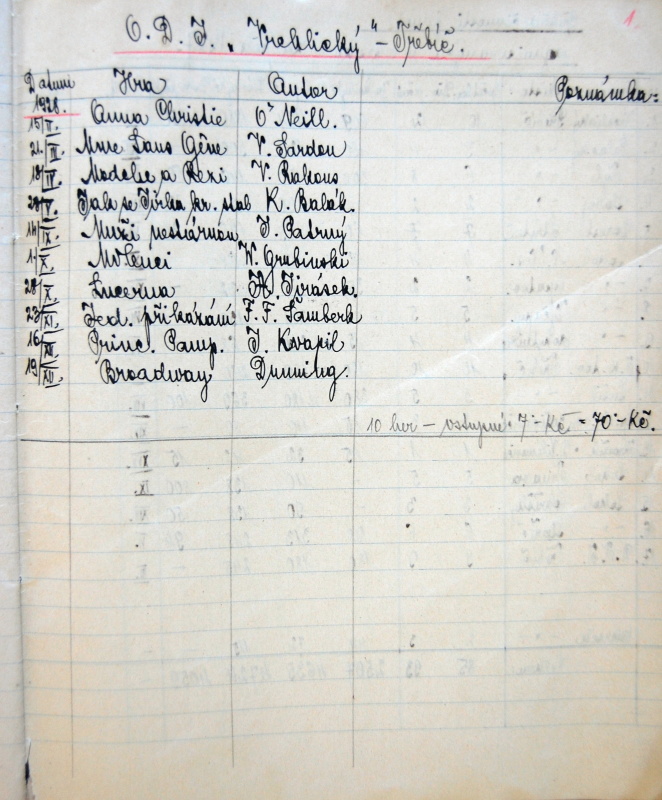 1.
O. D. J. „Vrchlický" – Třebíč.
Datum Hra Autor Poznámka:
1928.
15/II. Anna Christie O'Neill.
21./III. Mme Sans Gêne V. Sardou
18/IV. V. Rakous
29/V. Jak se Jirka kr. stal K. Balák.
14/IX. Muži nestárnou J. Patrný
1./X. Milenci W. Grubinski
28/X. Lucerna A. Jirásek.
23/XI. Jed. přikázání F. F. Šamberk
16/XII. Princ. Pamp. J. Kvapil
19/XII. Broadway Dunning.
10 her – vstupné 7·– Kč = 70·– Kč.